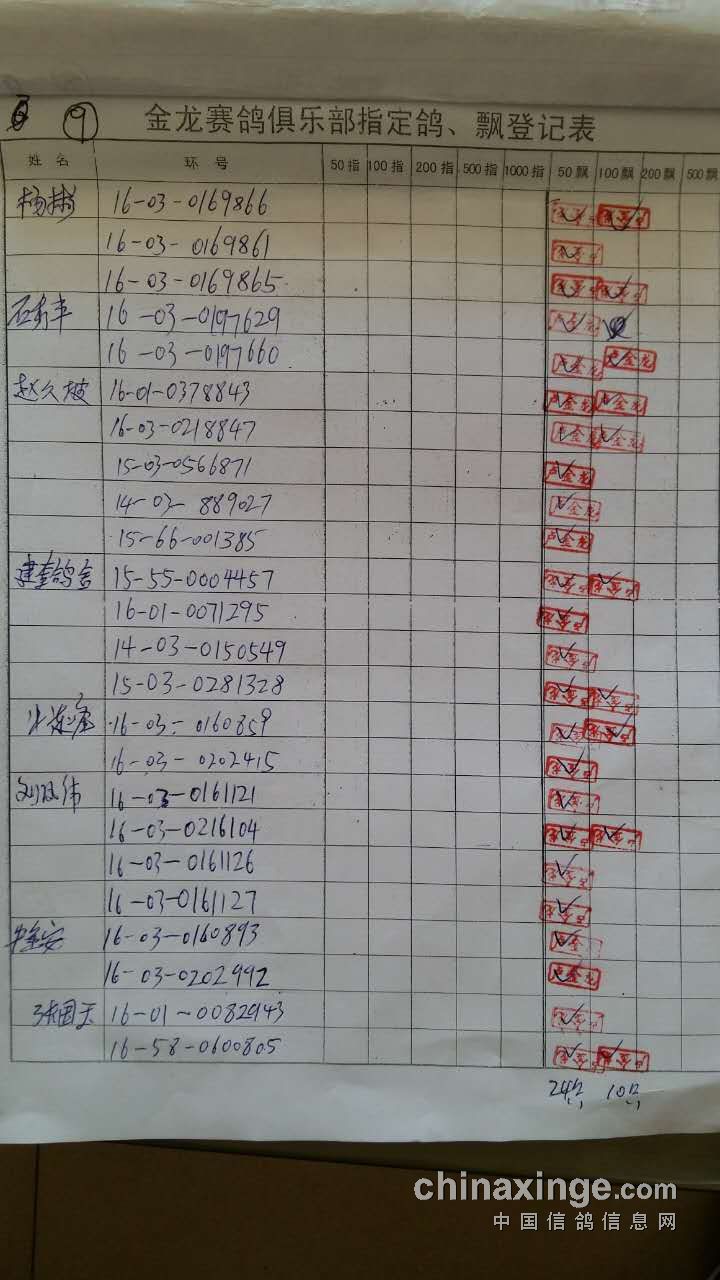 9 金龙赛鸽俱乐部指定鸽、飘登记表
姓名 环号 50指 100指 200指 500指 1000指 50飘 100飘 200飘 500飘
16-03-0169866
16-03-0169861
16-03-0169865
16-03-0197629
16-03-0197660 卢金龙
赵久坡 16-01-0378843 卢金龙 卢金龙
16-03-0218847 卢金龙 卢金龙
15-03-0566871 卢金龙
14-03-889027 卢金龙
15-66-001385 卢金龙
建奎鸽舍 15-55-0004457
16-01-0071295
14-03-0150549
15-03-0281328
16-03-0160859
16-03-0202415
刘凤伟 16-03-0161121
16-03-0216104
16-03-0161126
16-03-0161127
16-03-0160893
16-03-0202992 卢金龙
16-01-0082943
16-58-0600805
24只 10只
chinaxinge.com
中国信鸽信息网